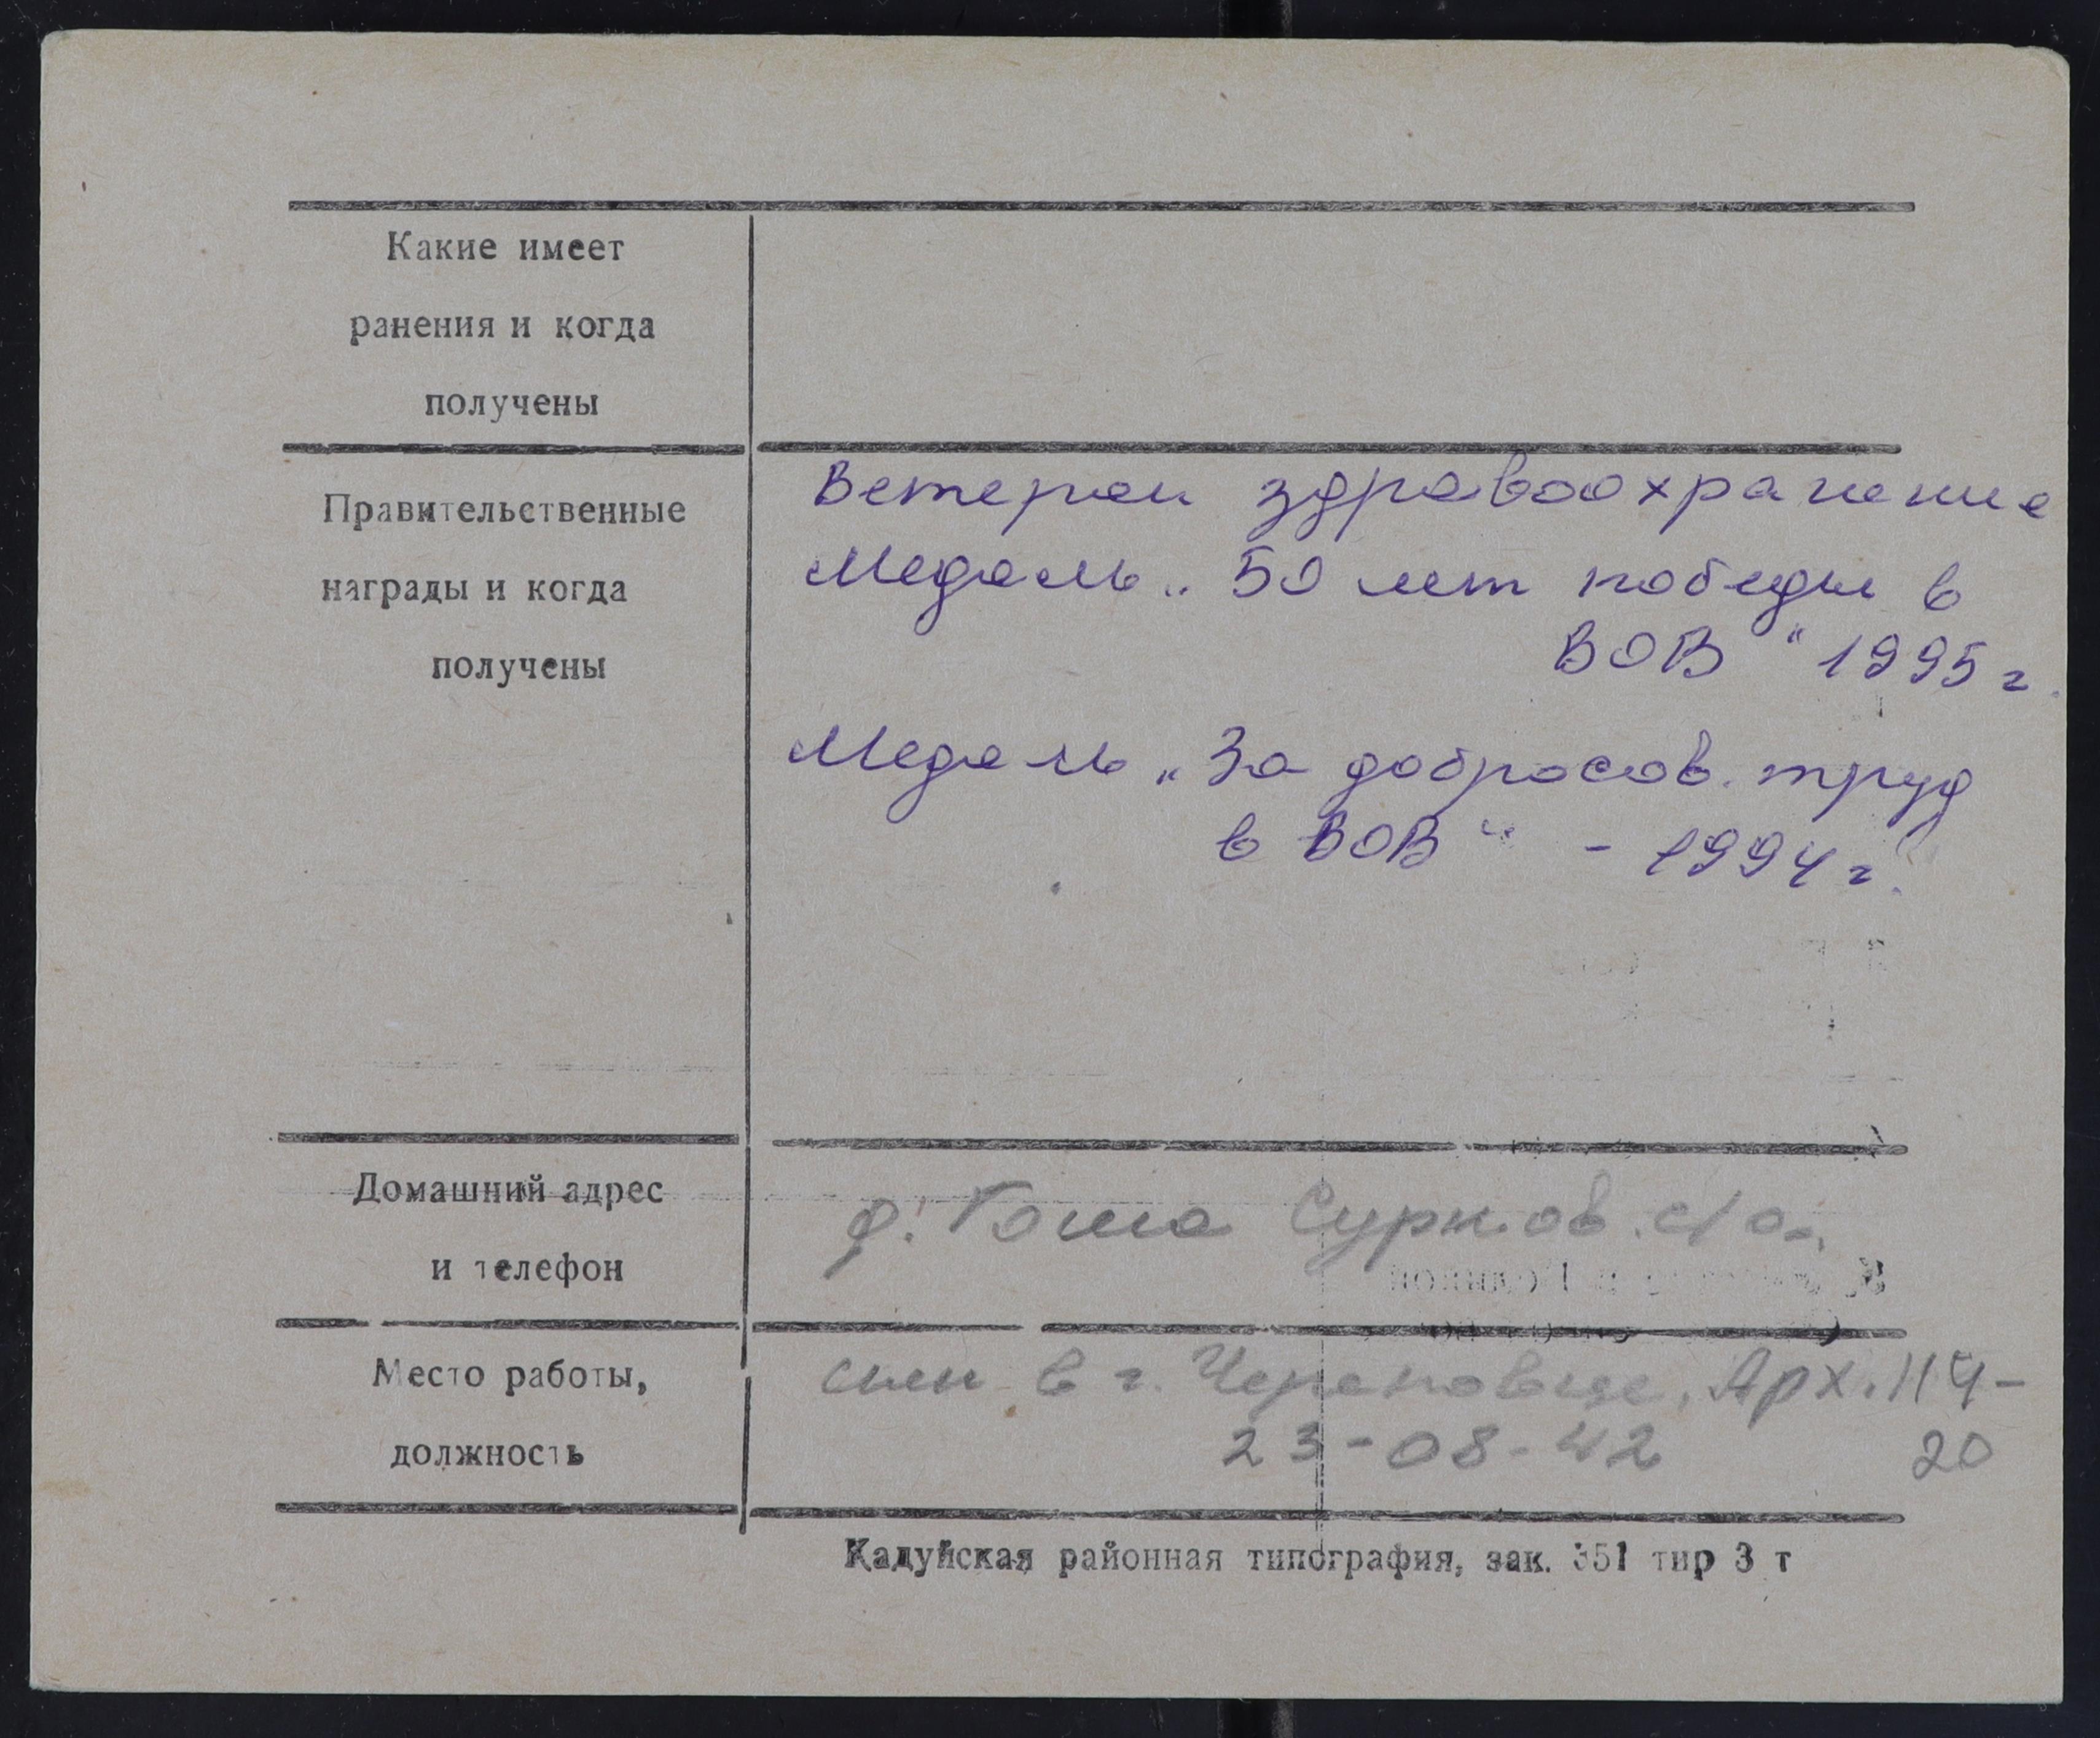 Какие имеет
ранения и когда
получены
Правительственные
награды и когда
получены
Ветеран здравоохранение
Медаль „50 лет победы в
ВОВ" 1995 г.
Медаль „За добросов. труд
в ВОВ" - 1994 г.
Домашний адрес
и телефон
Сурков.
Место работы,
должность
сын в г. Череповце, Арх. 114-
23-08-42 20
Кадуйская районная типография, зак. 351 тир 3 т